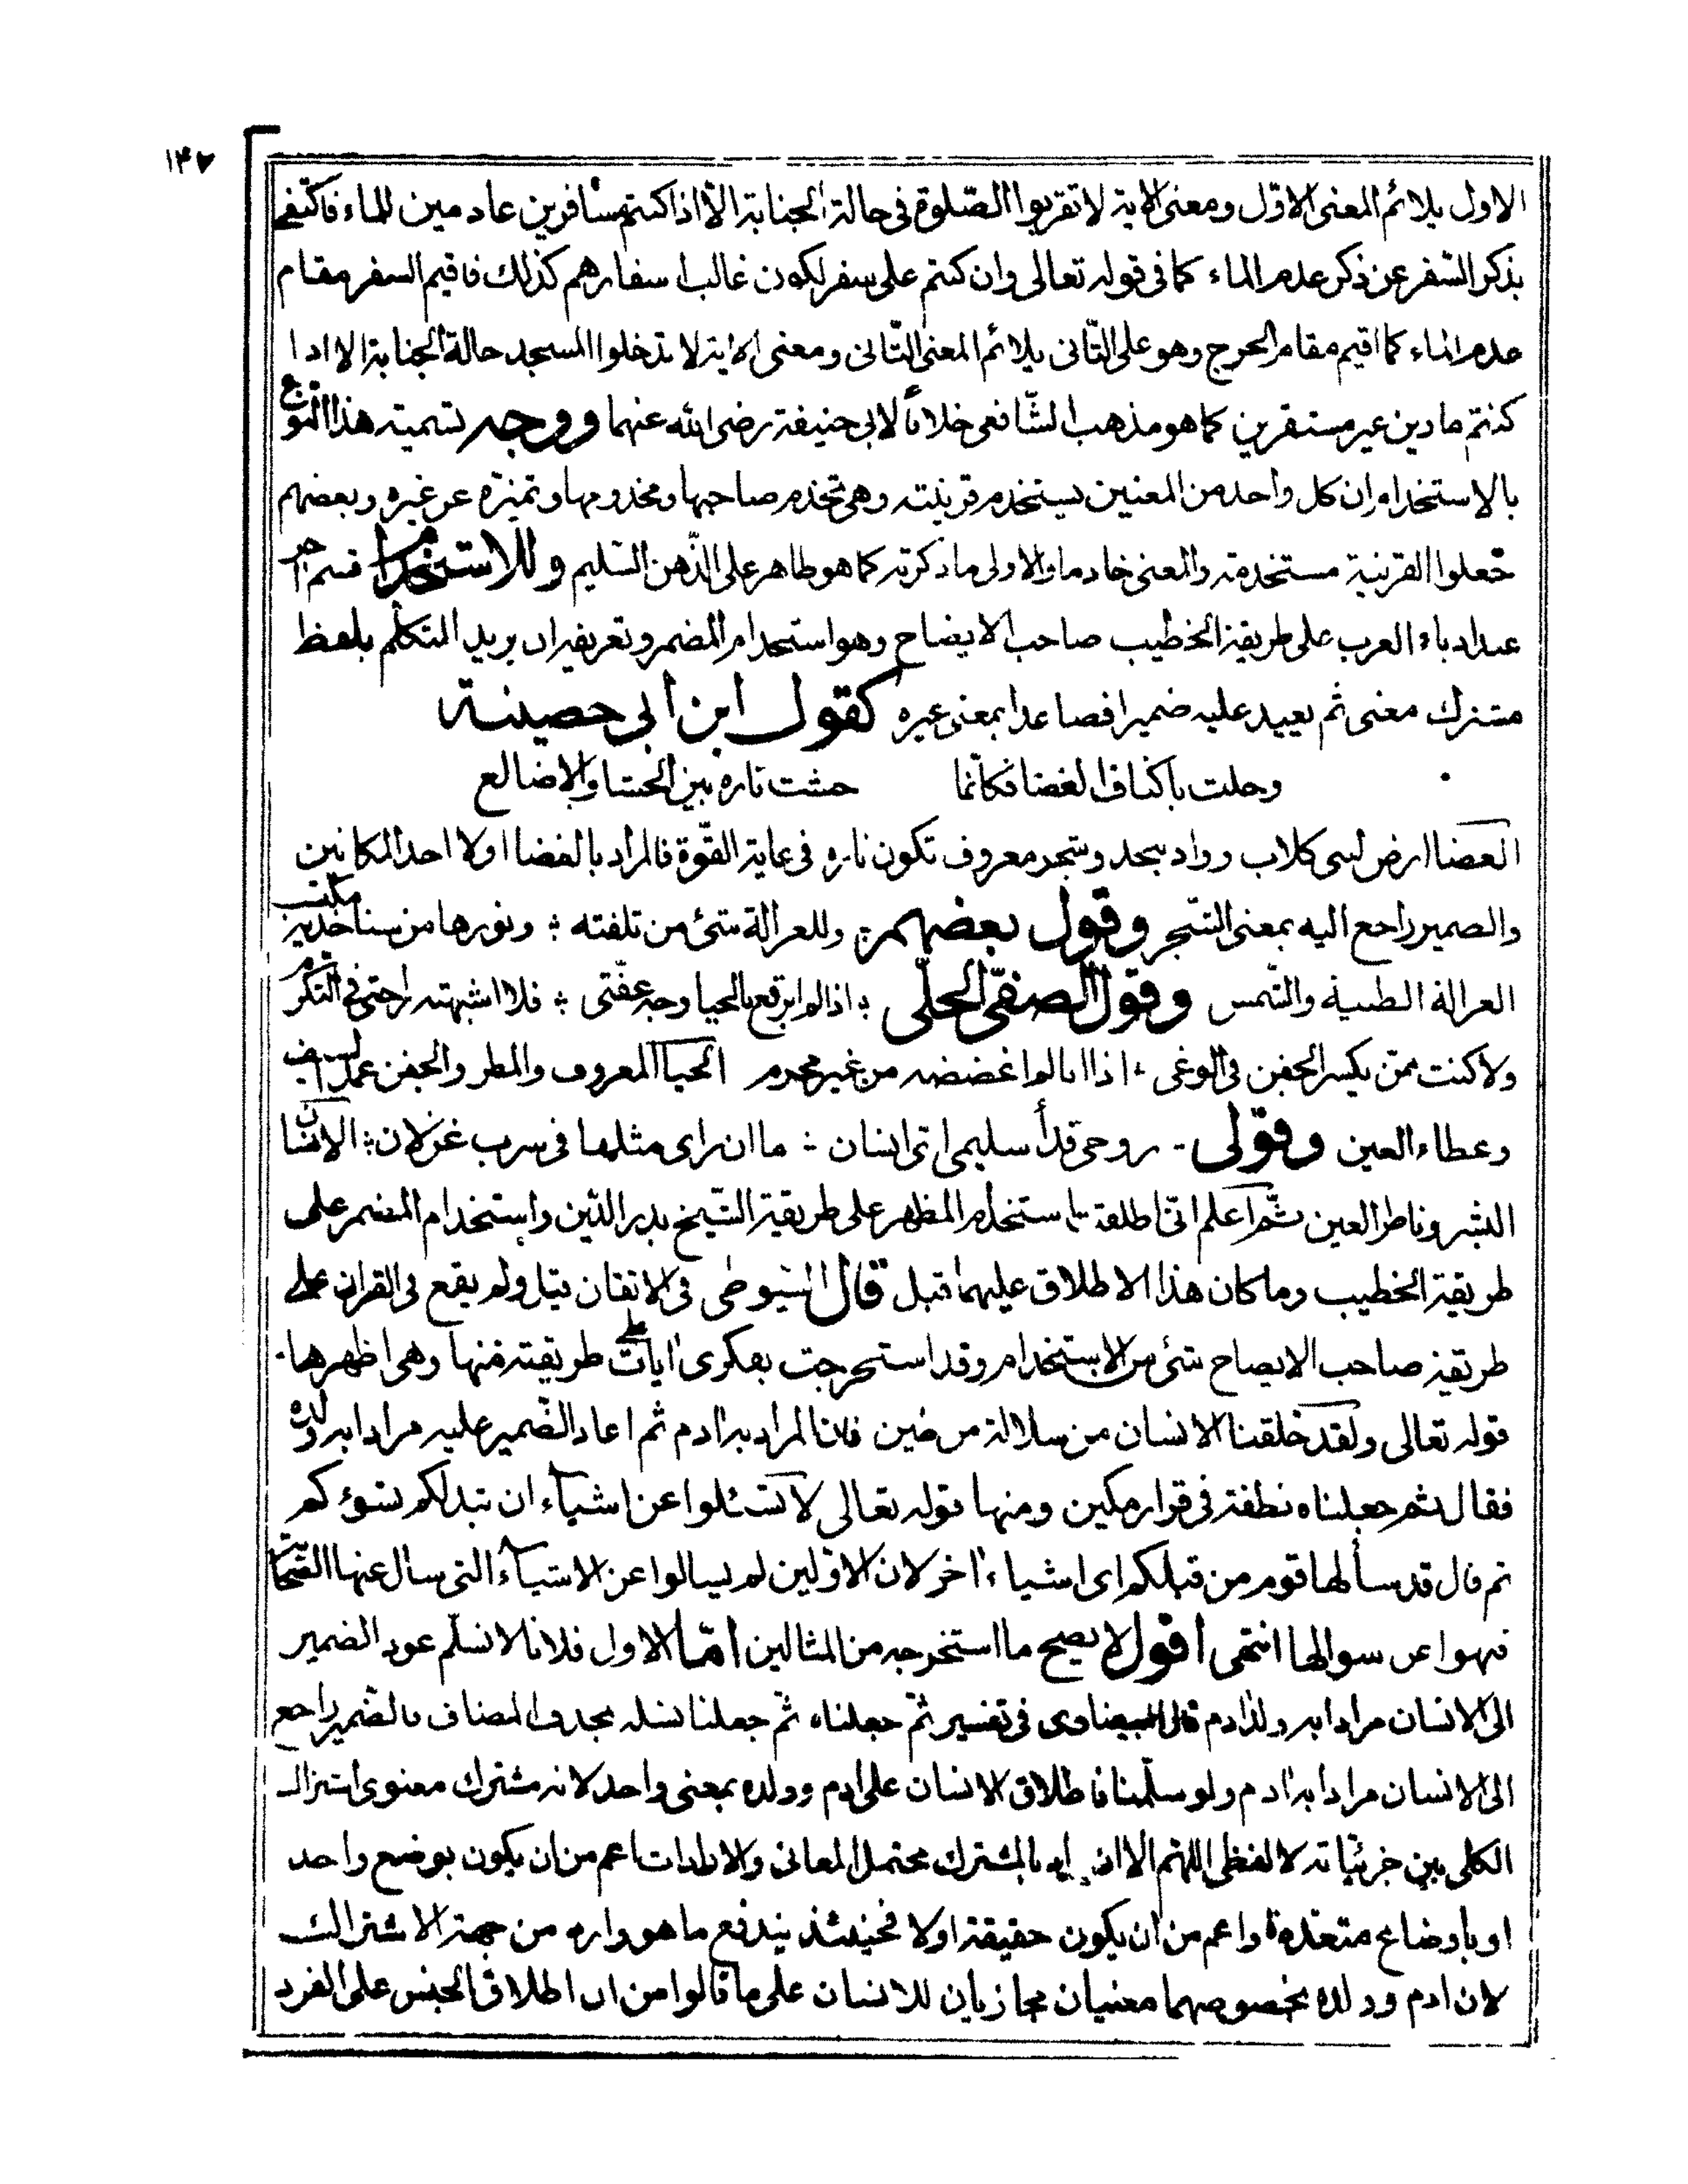 ١٤٧
الاول يلائم المعنى الاوّل ومعنى الاية لا تقربوا الصّلوة فى حالة الجنابة الّا اذا كنتم مسافرين عادمين للماء فاكتفى
بذكر السّفر عن ذكر عدم الماء كما فى قوله تعالى وان كنتم على سفر لكون غالب اسفارهم كذلك فاقيم السفر مقام
عدم الماء كما اقيم مقام الحرج وهو على الثّانى يلائم المعنى الثّانى ومعنى الاية لا تدخلوا المسجد حالة الجنابة الا اذا
كنتم مارين غير مستقرين كما هو مذهب الشّافعى خلافاً لابى حنيفة رضى الله عنهما ووجه تسميته هذا النوع
بالاستخدام ان كل واحد من المعنين يستخدم قرينته وهى تخدم صاحبها ومخدومها وتميزه عن غيره وبعضهم
جعلوا القرنية مستخدمة والمعنى خادما والاولى ما ذكرته كما هو ظاهر على الذّهن السّليم وللاستخدام قسم اخر
عند ادباء العرب على طريقة الخطيب صاحب الايضاح وهو استخدام المضمر وتعريفه ان يريد المتكلّم بلفظ
مشترك معنى ثم يعيد عليه ضميرا فصاعدا بمعنى غيره كقول ابن ابى حصينة
وحلت باكناف الغضا فكانّما حشت ناره بين الحشا والاضالع
الغضا ارض لبنى كلاب وواد بنجد وشجر معروف تكون ناره فى غاية القوّة فالمراد بالغضا اولا احد المكانين
والضمير راجع اليه بمعنى الشّجر وقول بعضهم وللغزالة شئ من تلفته ؛ ونورها من سنا خديه مكتسب
الغزالة الظبية والشّمس وقول الصفىّ الحلّى ؛ اذا لم ابرقع بالحيا وجه عفّتى ؛ فلا اشبهته راحتى فى التكرم
ولا كنت ممّن يكسر الجفن فى الوغى ؛ اذا انا لم اغضضه من غير محرم الحيا المعروف والمطر والجفن غمد السيف
وغطاء العين وقولى روحى فدا سليمى انسان ؛ ما ان راى مثلها فى سرب غزلان ؛ الانسان
البشر وناظر العين ثم اعلم انّ اطلاق استخدام المظهر على طريقة الشّيخ بدر الدّين واستخدام المضمر على
طريقة الخطيب وما كان هذا الاطلاق عليهما قبل قال السّيوطى فى الاتقان قيل ولم يقع فى القران على
طريقة صاحب الايضاح شئ من الاستخدام وقد استخرجت بفكرى ايات على طريقته فمنها وهى اظهرها
قوله تعالى ولقد خلقنا الانسان من سلالة من طين فان المراد به ادم ثم اعاد الضّمير عليه مرادا به ولده
فقال ثم جعلناه نطفة فى قرار مكين ومنها قوله تعالى لا تسئلوا عن اشياء ان تبد لكم تسؤكم
ثم قال قد سألها قوم من قبلكم اى اشياء اخر لان الاوّلين لم يسالوا عن الاشياء التى سال عنها الصّحابة
فنهوا عن سوالها انتهى اقول لا يصح ما استخرجه من المثالين امّا الاول فلانا لا نسلّم عود الضمير
الى الانسان مرادا به ولد ادم قال البيضاوى فى تفسير ثمّ جعلناه ثمّ جعلنا نسله بحذف المضاف فالضّمير راجع
الى الانسان مرادا به ادم ولو سلّمنا فاطلاق الانسان على ادم وولده بمعنى واحد لانه مشترك معنوى اشتراك
الكلى بين جزئيّاته لا لفظى اللهّم الا ان بالمشترك محتمل المعانى والارادات اعم من ان يكون بوضع واحد
او باوضاع متعدّدة واعم من ان يكون حقيقة اولا فحينئذ يندفع ما هو وارد من جهة الاشتراك
لان ادم وولده بخصوصهما معنيان مجازيان للانسان على ما قالوا من ان اطلاق الجنس على الفرد